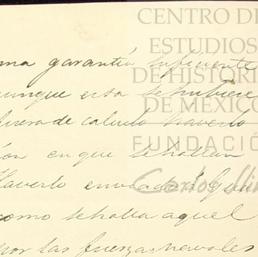 CENTRO DE
ESTUDIOS
DE HISTORIA
DE MÉXICO
FUNDACIÓN
Carlos Slim
una garantía suficiente
aunque esta se hubiere
fuera de calculo haverlo
en que se hallan
Haverlo enviado
como se halla aquel
por las fuerzas navales